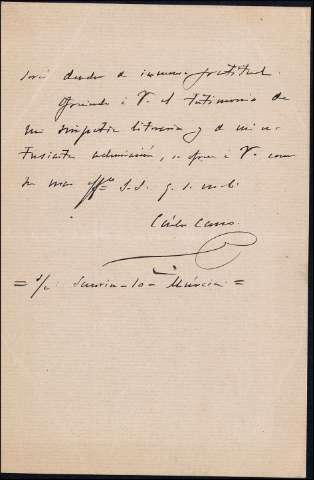 será deudor de inmensa gratitud.
Ofreciendo á V. el testimonio de
mi simpatía literaria y de mi en-
tusiasta admiración, se ofrece á V. como
su mas aff.mo S.S. q. s. m. b.
Cárlos Cano
= s/c: 10 - Múrcia =